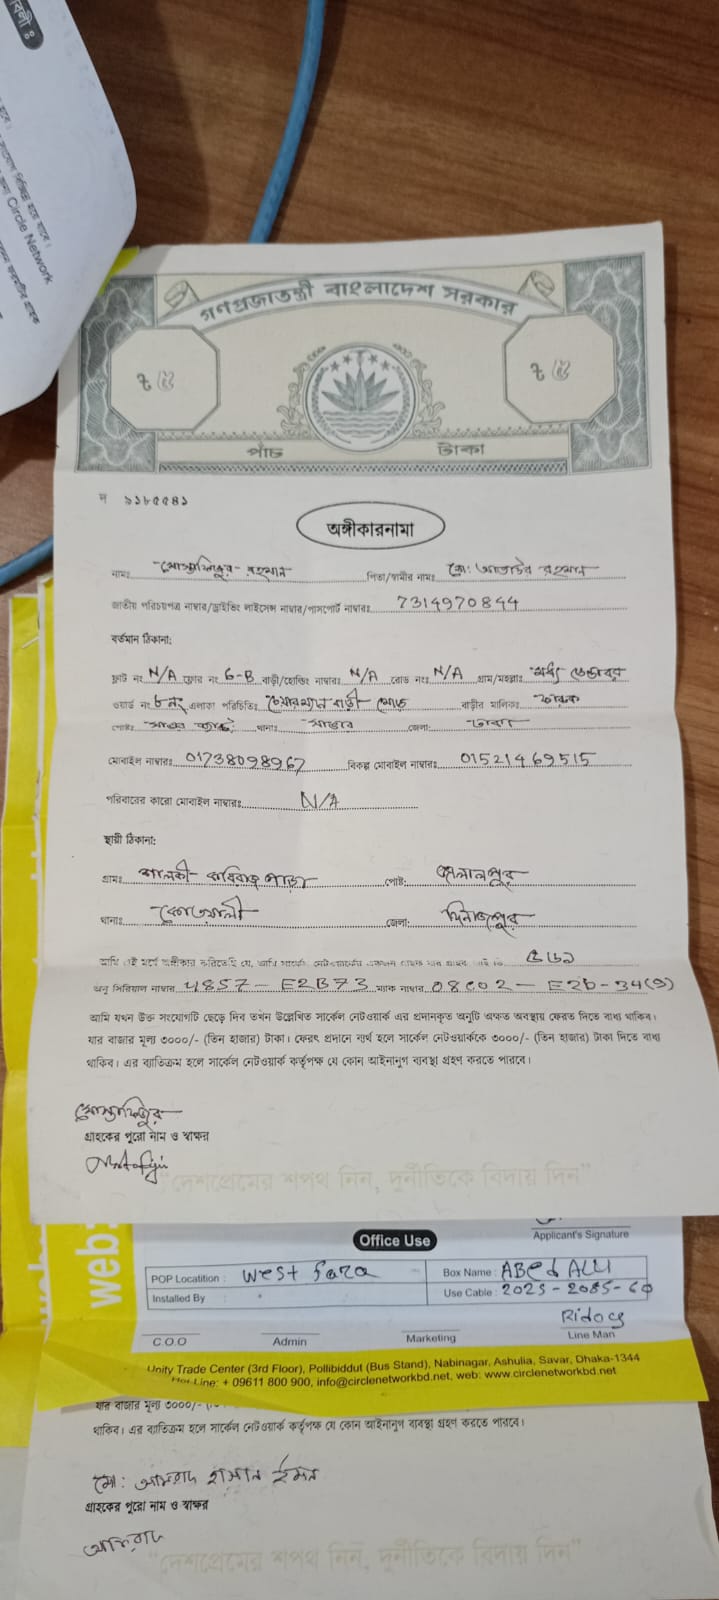 বলী ঃ
Circle Network
গণপ্রজাতন্ত্রী বাংলাদেশ সরকার
৳ ৫
৳ ৫
পাঁচ টাকা
দ ৯১৮৫৫৪১
অঙ্গীকারনামা
নামঃ মোস্তাফিজুর রহমান পিতা/স্বামীর নামঃ মো: আতাউর রহমান
জাতীয় পরিচয়পত্র নাম্বার/ড্রাইভিং লাইসেন্স নাম্বার/পাসপোর্ট নাম্বারঃ 7314970844
বর্তমান ঠিকানা:
ফ্লাট নং N/A ফ্লোর নং 6-B বাড়ী/হোল্ডিং নাম্বারঃ N/A রোড নংঃ N/A গ্রাম/মহল্লাঃ মধ্য
ওয়ার্ড নং ৮নং এলাকা পরিচিতিঃ চেয়ারম্যান বাড়ী মোড় বাড়ীর মালিকঃ
পোষ্টঃ সাভার ক্যান্ট: থানাঃ সাভার জেলা: ঢাকা
মোবাইল নাম্বারঃ 01738098967 বিকল্প মোবাইল নাম্বারঃ 01521469515
পরিবারের কারো মোবাইল নাম্বারঃ N/A
স্থায়ী ঠিকানা:
গ্রামঃ পাড়া পোষ্ট:
থানাঃ কোতয়ালী জেলা: দিনাজপুর
আমি এই মর্মে অঙ্গীকার করিতেছি যে, আমি সার্কেল নেটওয়ার্কের একজন গ্রাহক
অনু সিরিয়াল নাম্বার 4857-E2B73 ম্যাক নাম্বার 08C02-E2b-34(9)
আমি যখন উক্ত সংযোগটি ছেড়ে দিব তখন উল্লেখিত সার্কেল নেটওয়ার্ক এর প্রদানকৃত অনুটি অক্ষত অবস্থায় ফেরত দিতে বাধ্য থাকিব।
যার বাজার মূল্য ৩০০০/- (তিন হাজার) টাকা। ফেরৎ প্রদানে ব্যর্থ হলে সার্কেল নেটওয়ার্ককে ৩০০০/- (তিন হাজার) টাকা দিতে বাধ্য
থাকিব। এর ব্যতিক্রম হলে সার্কেল নেটওয়ার্ক কর্তৃপক্ষ যে কোন আইনানুগ ব্যবস্থা গ্রহণ করতে পারবে।
মোস্তাফিজুর
গ্রাহকের পুরো নাম ও স্বাক্ষর
"দেশপ্রেমের শপথ নিন, দুর্নীতিকে বিদায় দিন"
web:
Office Use
Applicant's Signature
POP Locatition : West Para Box Name : ABed ALU
Installed By : Use Cable : 2025-2085-60
Ridoy
C.O.O Admin Marketing Line Man
Unity Trade Center (3rd Floor), Pollibiddut (Bus Stand), Nabinagar, Ashulia, Savar, Dhaka-1344
Hot Line: + 09611 800 900, info@circlenetworkbd.net, web: www.circlenetworkbd.net
যার বাজার মূল্য ৩০০০/-
থাকিব। এর ব্যতিক্রম হলে সার্কেল নেটওয়ার্ক কর্তৃপক্ষ যে কোন আইনানুগ ব্যবস্থা গ্রহণ করতে পারবে।
মো: হাসান ইমন
গ্রাহকের পুরো নাম ও স্বাক্ষর
"দেশপ্রেমের শপথ নিন, দুর্নীতিকে বিদায় দিন"